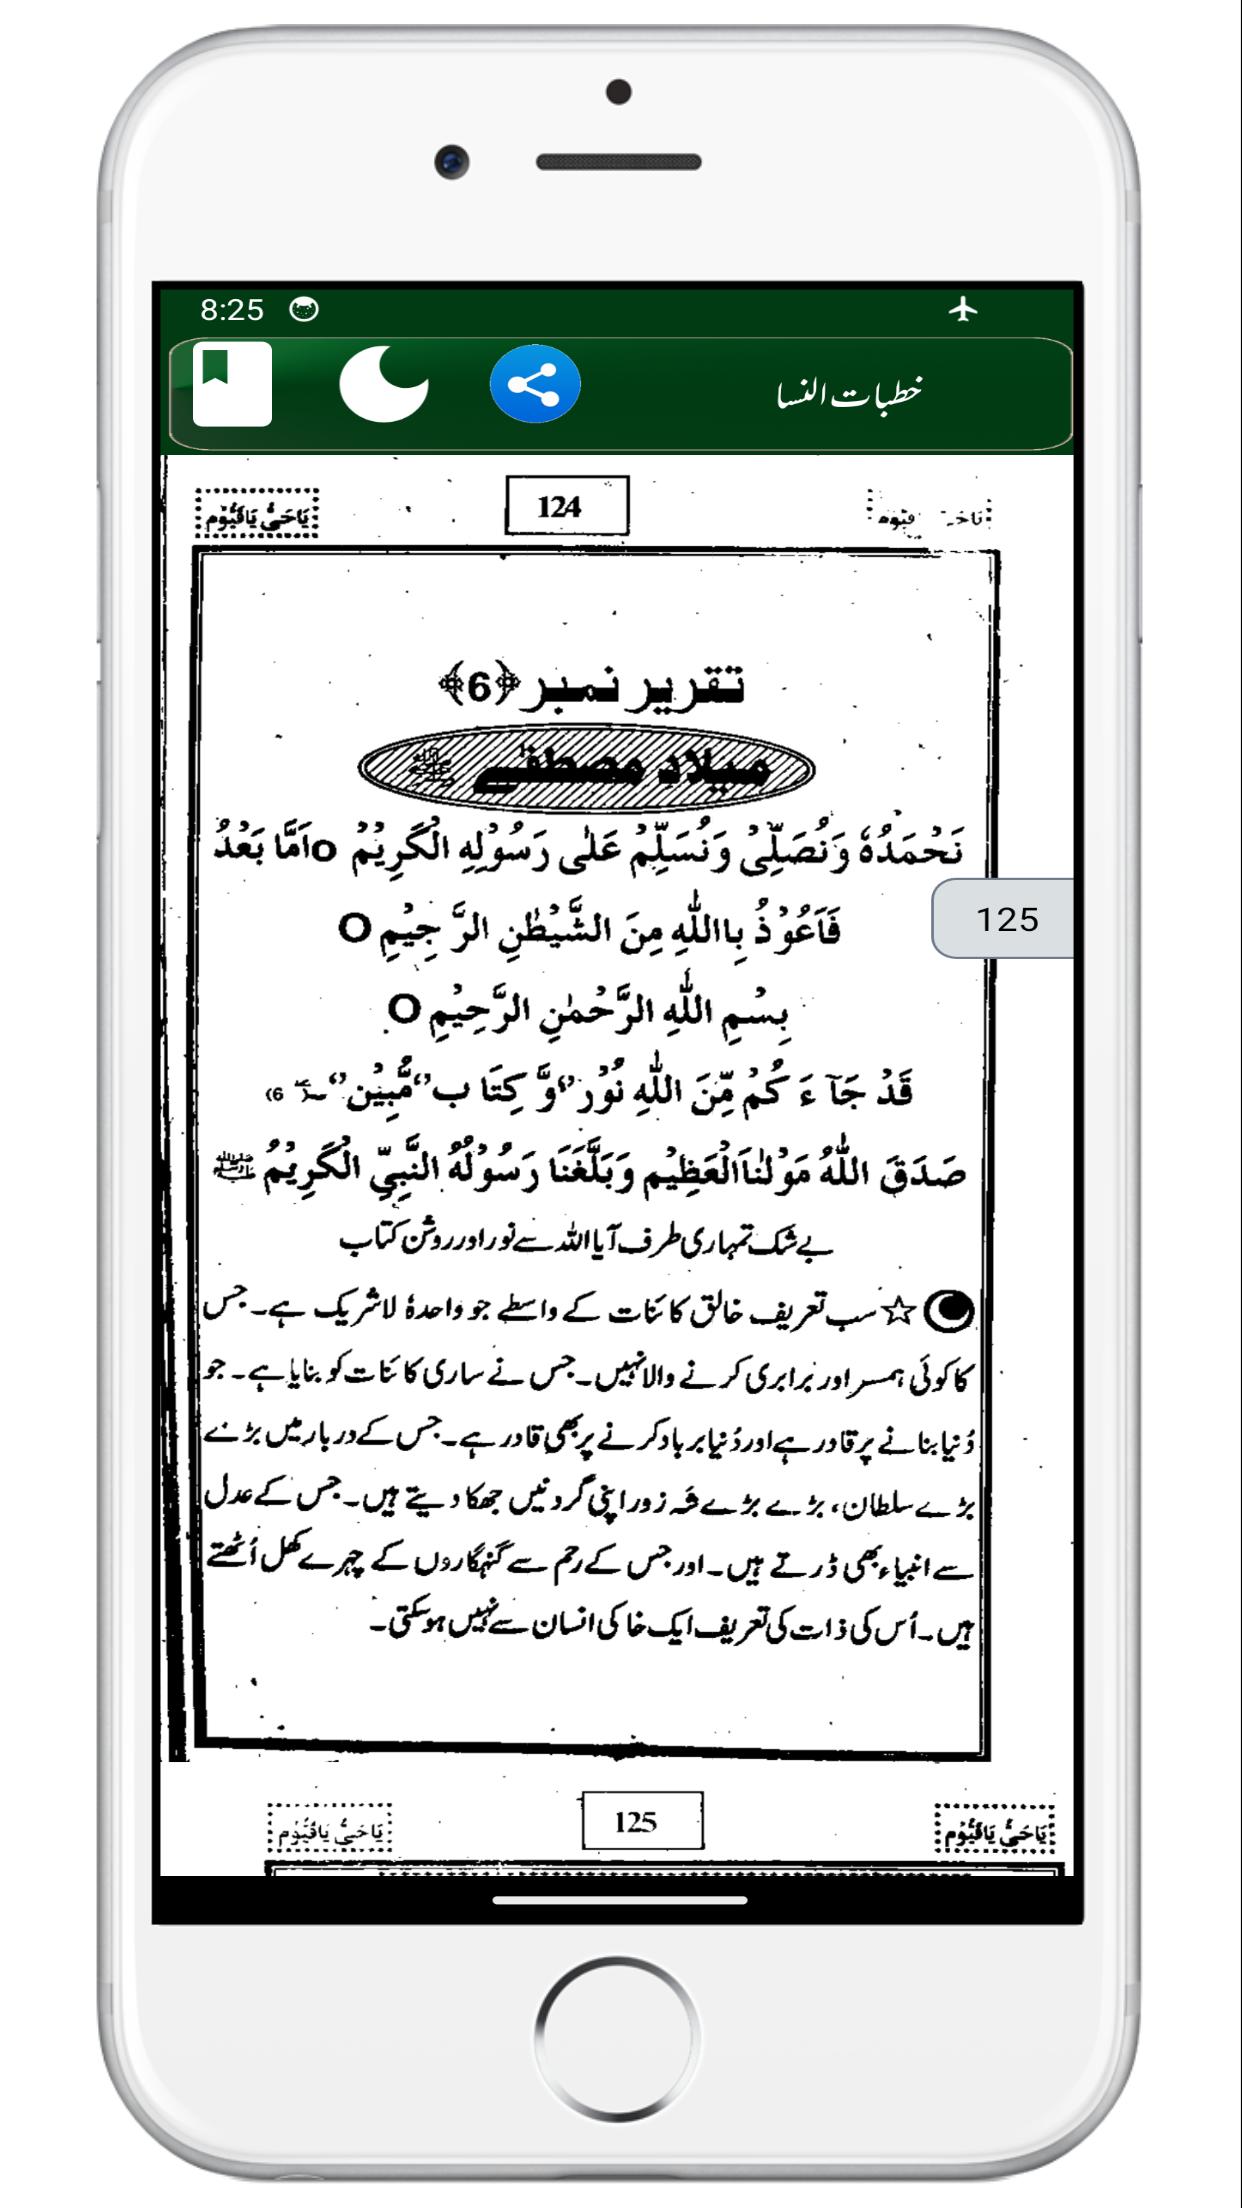 8:25
خطبات النسا
یَاحَیُّ یَاقَیُّوْم
124
تقریر نمبر ﴿6﴾
میلادِ مصطفٰے ﷺ
نَحْمَدُہٗ وَنُصَلِّیْ وَنُسَلِّمْ عَلٰی رَسُوْلِهِ الْکَرِیْمْ oاَمَّا بَعْدُ
125
فَاَعُوْذُ بِااللّٰهِ مِنَ الشَّیْطٰنِ الرَّجِیْمِ O
بِسْمِ اللّٰهِ الرَّحْمٰنِ الرَّحِیْمِ O
قَدْ جَآءَ کُمْ مِّنَ اللّٰهِ نُوْر''وَّ کِتَا ب''مُّبِیْن''۔ 6)
صَدَقَ اللّٰهُ مَوْلٰنَاالْعَظِیْم وَبَلَّغَنَا رَسُوْلُهُ النَّبِیِّ الْکَرِیْمْ ﷺ
بے شک تمہاری طرف آیا اللہ سے نور اور روشن کتاب
☆سب تعریف خالق کائنات کے واسطے جو واحدہٗ لاشریک ہے۔ جس
کا کوئی ہمسر اور برابری کرنے والا نہیں۔ جس نے ساری کائنات کو بنایا ہے۔ جو
دُنیا بنانے پر قادر ہے اور دُنیا برباد کرنے پر بھی قادر ہے۔ جس کے دربار میں بڑے
بڑے سلطان، بڑے بڑے شہ زور اپنی گردنیں جھکا دیتے ہیں۔ جس کے عدل
سے انبیاء بھی ڈرتے ہیں۔ اور جس کے رحم سے گنہگاروں کے چہرے کھل اُٹھتے
ہیں۔ اُس کی ذات کی تعریف ایک خاکی انسان سے نہیں ہوسکتی۔
یَاحَیُّ یَاقَیُّوْم
125
یَاحَیُّ یَاقَیُّوْم